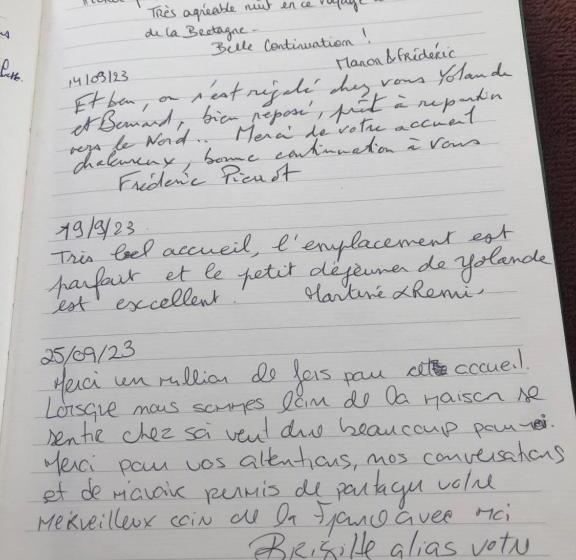 Très agréable nuit en ce voyage
de la Bretagne.
Belle Continuation !
Manon & Frédéric
14/09/23
Et ben, on s'est régalé chez vous Yolande
et Bernard, bien reposé, prêt à repartir
vers le Nord... Merci de votre accueil
chaleureux, bonne continuation à vous
Frédéric
19/9/23
Très bel accueil, l'emplacement est
parfait et le petit déjeuner de Yolande
est excellent. Martine & Remi.
25/09/23
Merci un million de fois pour cet accueil.
Lorsque nous sommes loin de la maison se
sentir chez soi veut dire beaucoup pour moi.
Merci pour vos attentions, nos conversations
et de m'avoir permis de partager votre
merveilleux coin de la France avec moi
Brigitte alias votre